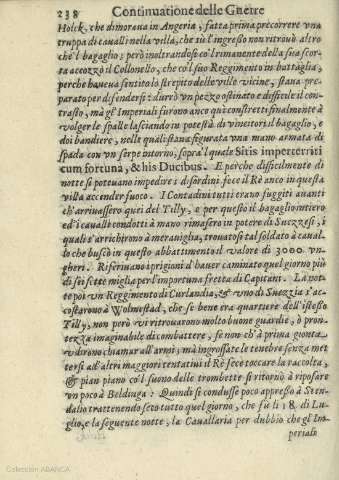 238 Continuatione delle Guerre
Holck, che dimoraua in Angeria, fatta prima precorrere vna
truppa di caualli nella villa, che sù l'ingresso non ritrouò altro
che'l bagaglio; però inoltrandosi co'l rimanente della sua scor-
ta accozzò il Collonello, che co'l suo Reggimento in battaglia,
perche haueua sentito lo strepito delle ville vicine, staua pre-
parato per difendersi: durrò vn pezzo ostinato e difficile il con-
trasto, mà gl'Imperiali furono anco quì constretti finalmente à
volger le spalle lasciando in potestà di vincitori il bagaglio, e
doi bandiere, nelle quali staua figurata vna mano armata di
spada con vn serpe intorno, sopra'l quale Sitis imperterriti
cum fortuna, & his Ducibus. E perche difficilmente di
notte si poteuano impedire i disordini fece il Rè anco in questa
villa accender fuoco. I Contadini tutti erano fuggiti auanti
ch'arriuassero quei del Tilly, e per questo il bagaglio intiero
ed'i caualli condotti à mano rimasero in potere di Suezzesi, i
quali s'arrichirono à merauiglia, trouatosi tal soldato à caual-
lo che buscò in questo abbattimento il valore di 3000 vn-
gheri. Riferiuano i prigioni d'hauer caminato quel giorno più
di sei sette miglia per l'importuna fretta di Capitani. La not-
te poi vn Reggimento di Curlandia, & vno di Suezzia s'ac-
costarono à Wolmestad, che se bene era quartiere dell'istesso
Tilly, non però vi ritrouarono molto buone guardie, ò pron-
tezza imaginabile di combattere, se non ch'à prima gionta
vdirono chiamar all'armi; mà ingrossate le tenebre senza met
tersi ad'altri maggiori tentatiui il Rè fece toccare la raccolta,
& pian piano co'l suono delle trombette si ritornò à riposare
vn poco à Beldinga: Quindi si condusse poco appresso à Sten-
dalio trattenendo seco tutto quel giorno, che fù li 18. di Lu-
glio, e la seguente notte, la Cauallaria per dubbio che gl'Im-
periali
Colección ABANCA